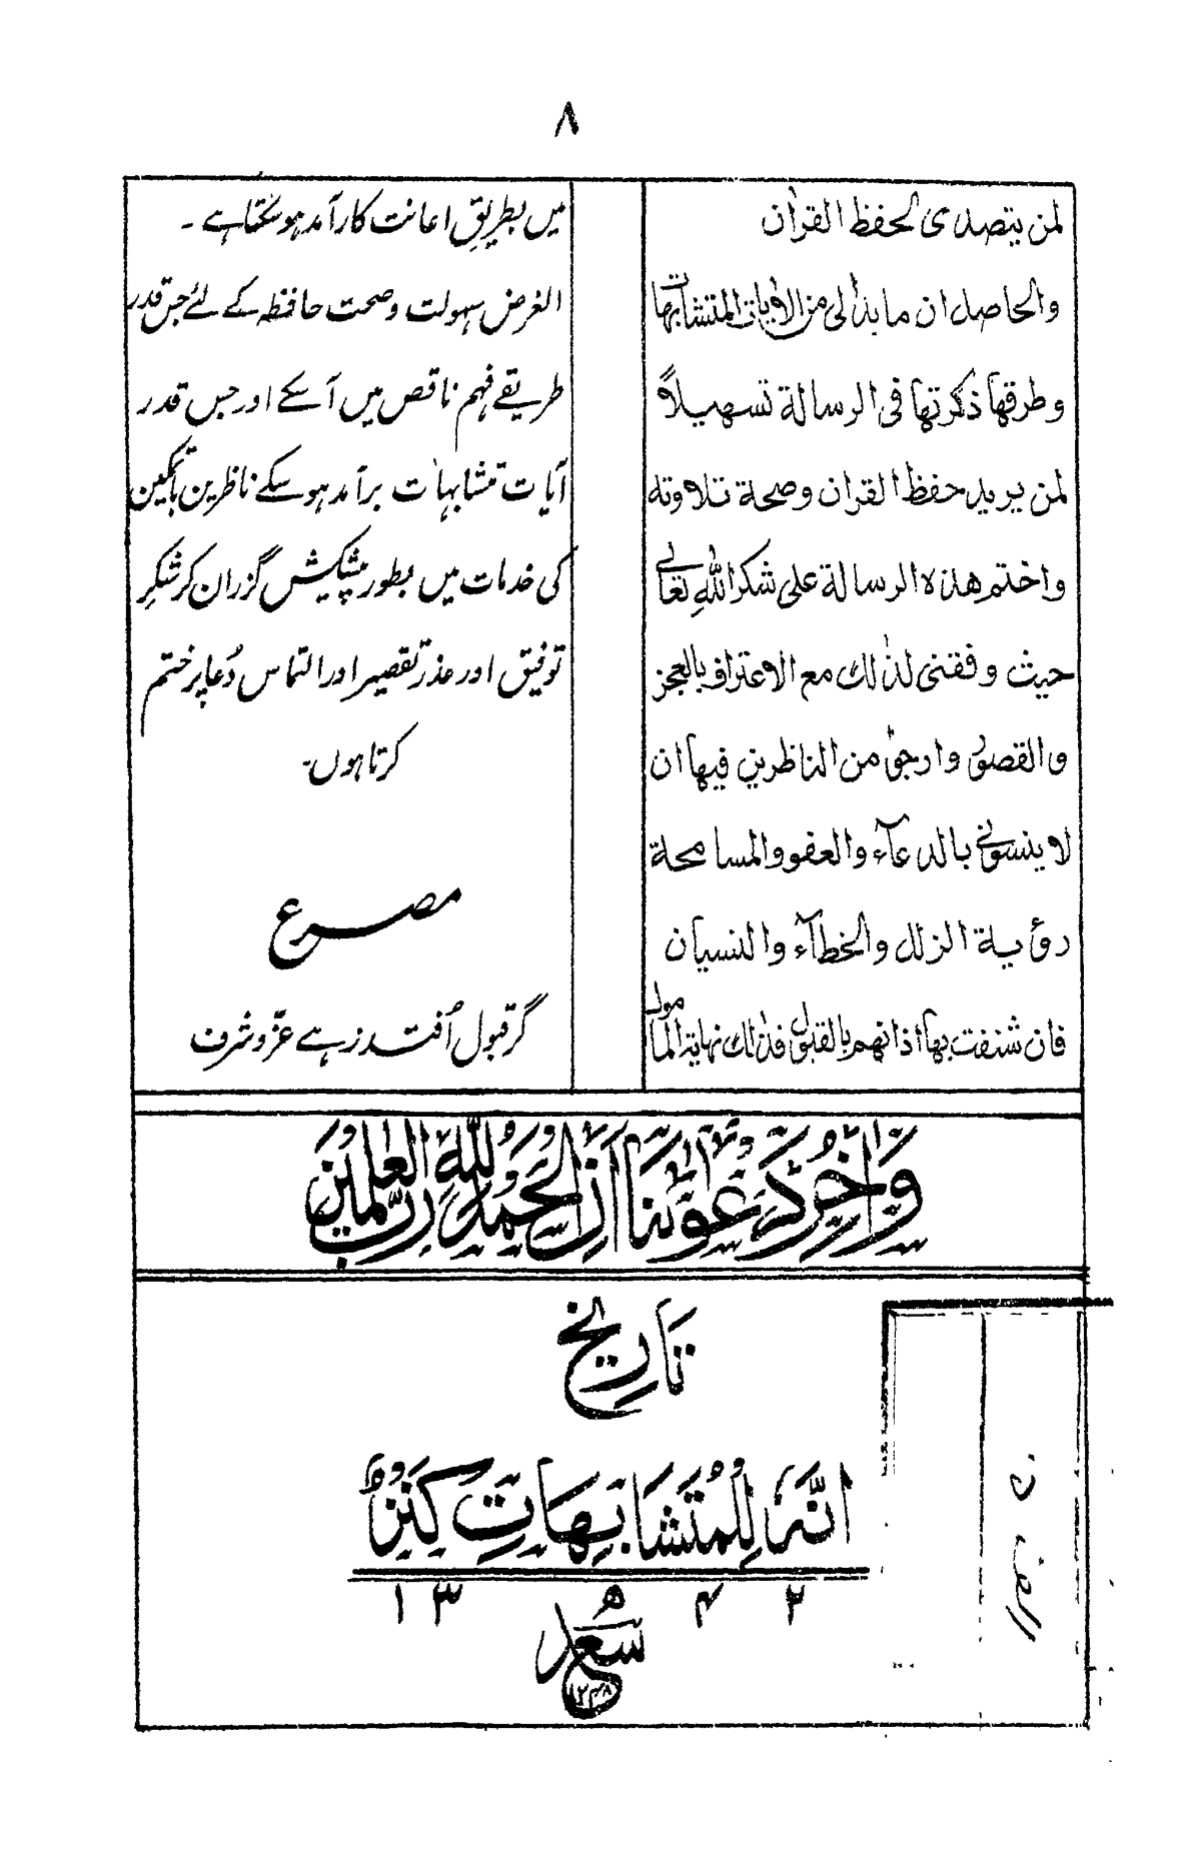 ٨
لمن يتصدى لحفظ القرآن
والحاصل ان ما بدأ لى من الأيات المتشابهات
وطرقها ذكرتها فى الرسالة تسهيلاً
لمن يريد حفظ القران وصحة تلاوته
واختم هذه الرسالة على شكر اللهِ تعالىٰ
حيث وفقنى لذٰلك مع الاعتراف بالعجز
والقصور وارجو من الناظرين فيها ان
لا ينسونى بالدعآء والعفو والمسامحة
رؤية الزلل والخطآء والنسيان
فان شنفت بها اذانهم بالقبول فذٰلك نهاية المامول
میں بطریقِ اعانت کارآمد ہوسکتا ہے ۔
الغرض سہولت وصحت حافظہ کے لئے جس قدر
طریقے فہم ناقص میں آسکے اور جس قدر
آیات متشابہات برآمد ہوسکے ناظرین باتمکین
کی خدمات میں بطور پیشکیش گزران کر شکرِ
توفیق اور عذر تقصیر اور التماس دُعا پر ختم
کرتا ہوں۔
مصرع
گر قبول اُفتد زہے عزّ و شرف
وَاٰخِرُ دَعْوٰنَا اَنِ الْحَمْدُ لِلّٰهِ رَبِّ الْعٰلَمِيْنَ
تَارِيخ
اِنَّهٗ لِلْمُتَشَابِهَاتِ كَنْزٌ
١٣٤٢ ه
سعد